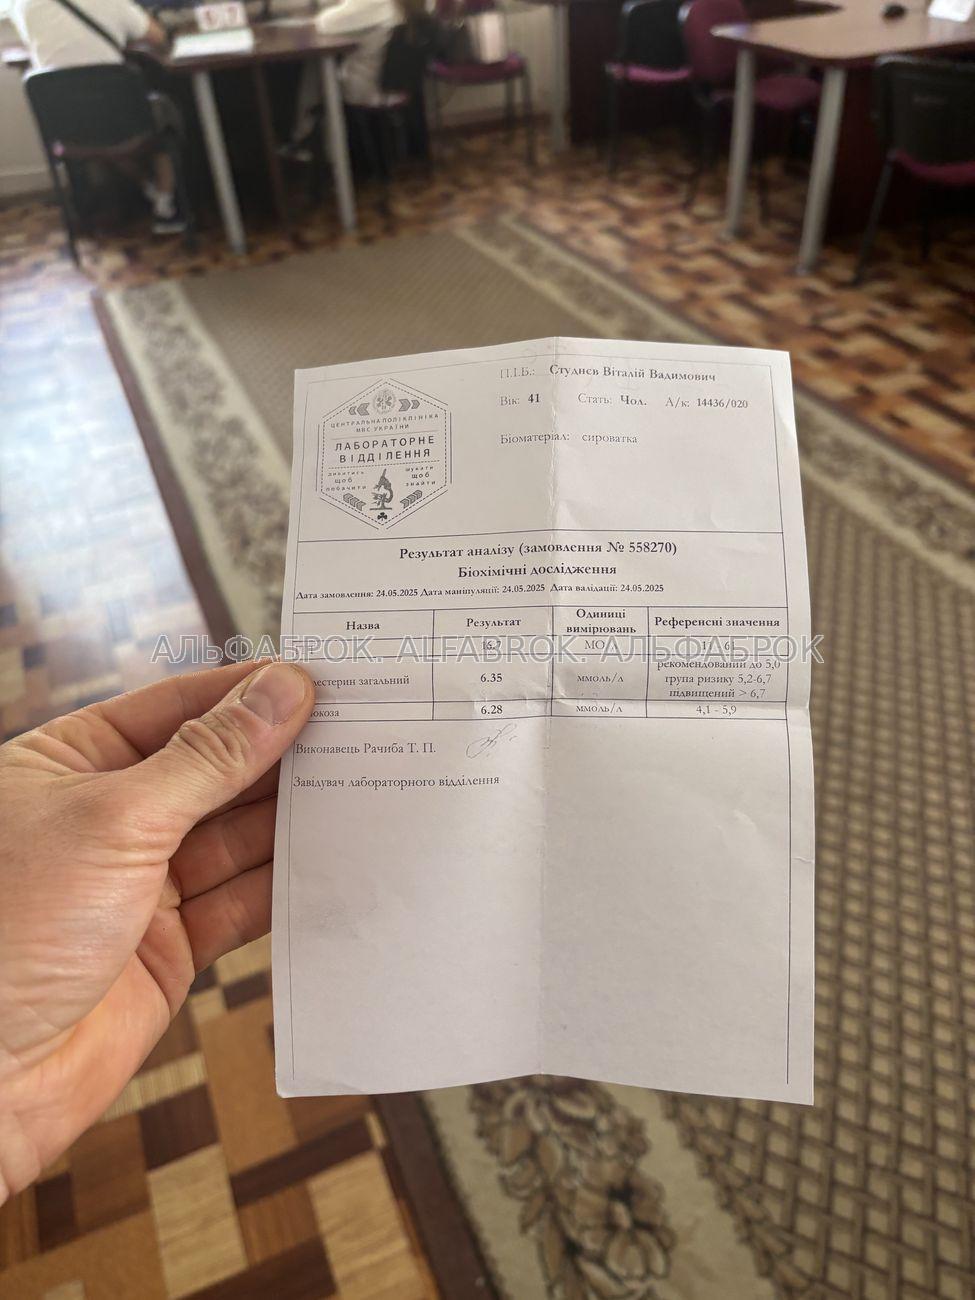 П.І.Б.: Студнєв Віталій Вадимович
Вік: 41 Стать: Чол. А/к: 14436/020
Біоматеріал: сироватка
ЦЕНТРАЛЬНА ПОЛІКЛІНІКА
МВС УКРАЇНИ
ЛАБОРАТОРНЕ
ВІДДІЛЕННЯ
дивитись щоб побачити
шукати щоб знайти
Результат аналізу (замовлення № 558270)
Біохімічні дослідження
Дата замовлення: 24.05.2025 Дата маніпуляції: 24.05.2025 Дата валідації: 24.05.2025
Назва Результат Одиниці вимірювань Референсні значення
АЛЬФАБРОК. ALFABROK. АЛЬФАБРОК
лестерин загальний 6.35 ммоль/л рекомендований до 5,0
група ризику 5,2-6,7
підвищений > 6,7
юкоза 6.28 ммоль/л 4,1 - 5,9
Виконавець Рачиба Т. П.
Завідувач лабораторного відділення